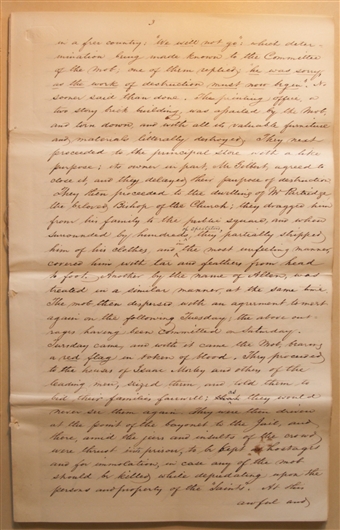 3
in a free country; "We will not go"; which deter-
mination being made known to the Committee
of the Mob, one of them replied, he was sorry,
as the work of destruction must now begin." No
sooner said than done. The printing office, a
two story brick building, was assailed by the Mob,
and torn down, and with all its valuable furniture
and materials litterally destroyed. They next
proceeded to the principal store with a like
purpose; its owner in part, Mr. Gilbert, agreed to
close it, and they delayed their purpose of destruction.
They then proceeded to the dwelling of Mr Partridge
the beloved Bishop of the Church; they dragged him
from his family to the public square, and when
surrounded by hundreds, of spectators, they partially stripped
him of his clothes, and in the most unfeeling manner,
covered him with tar and feathers from head
to foot. Another by the name of Allen, was
treated in a similar manner, at the same time.
The mob then disperses with an agreement to meet
again on the following Tuesday, the above out-
rages having been committed on Saturday.
Tuesday came, and with it came the Mob, bearing
a red flag in token of blood. They proceeded
to the houses of Isaac Morley and others of the
leading men, seized them and told them to
bid their families farewell; that they would
never see them again. They were then driven
at the point of the bayonet to the Jail, and
there, amid the jeers and insults of the crowd
were thrust into prison, to be kept as hostages
and for immolation, in case any of the mob
should be killed while depredating upon the
persons and property of the "Saints". At this
awful and